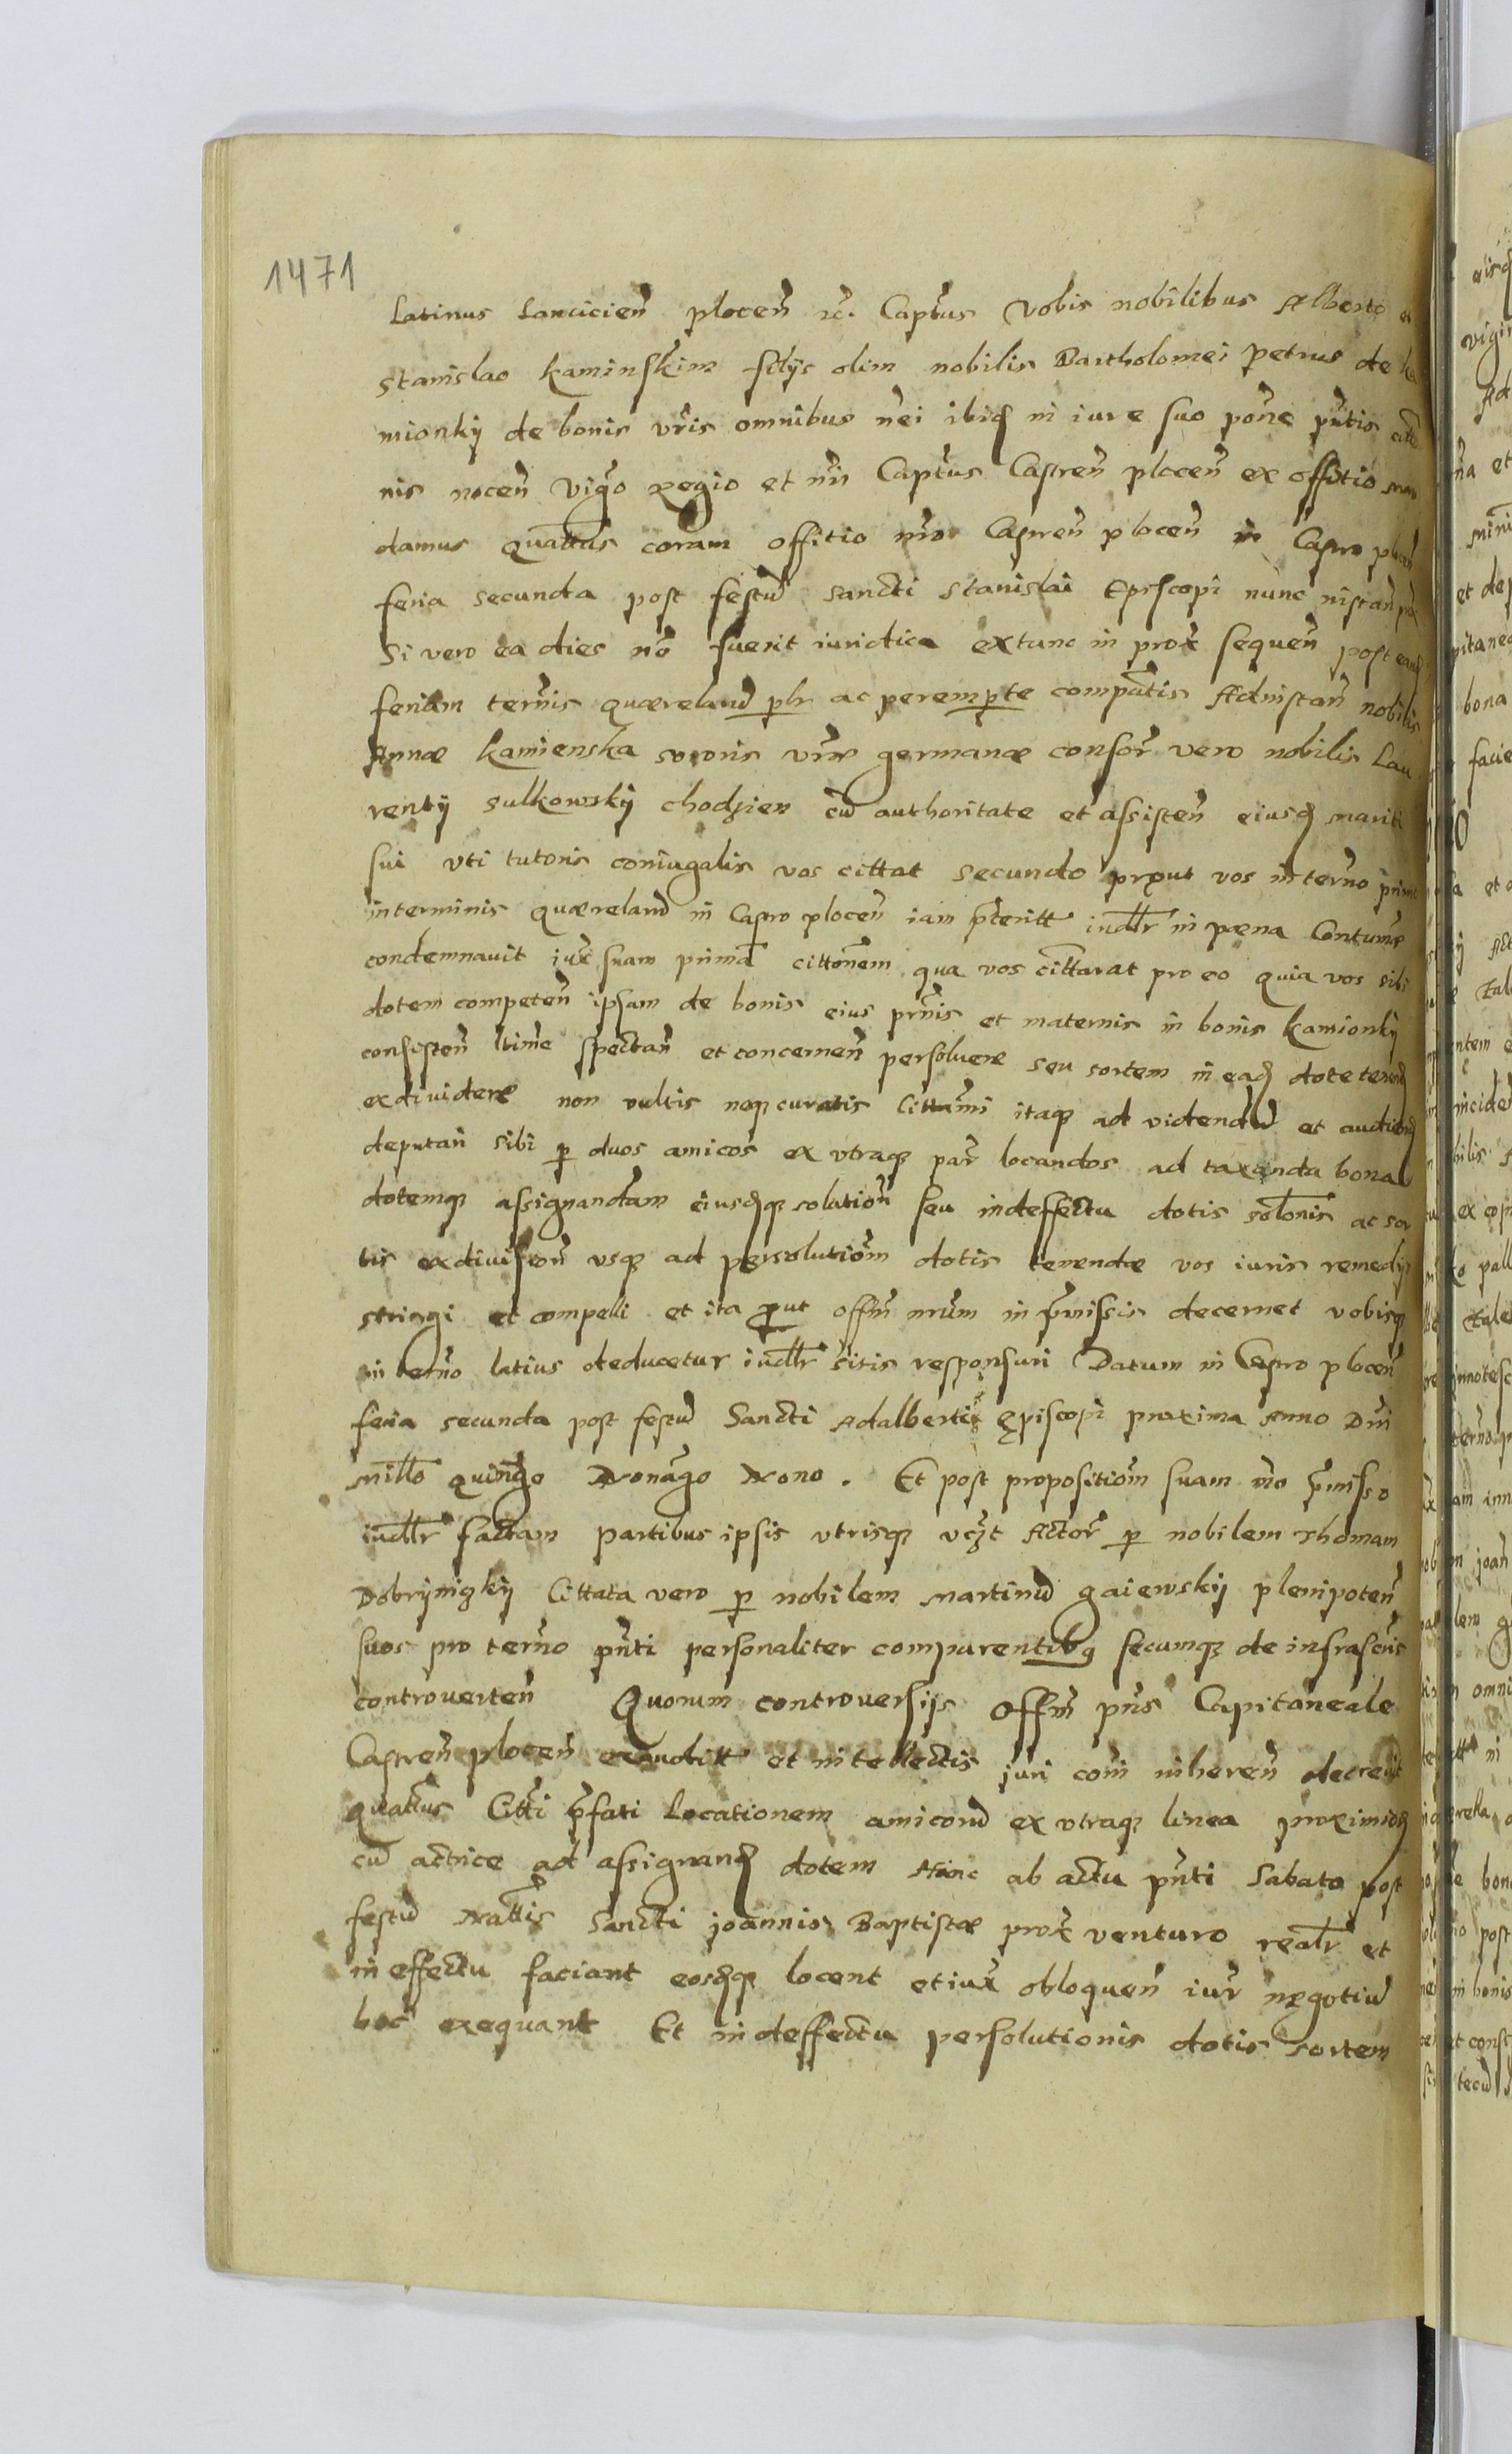 1471
Latinus Lancicieñ ploceñ rc. Captũs Vobis nobilibus Alberto et
Stanislao Kaminskim filijs olim nobilis Bartholomei petrus de Ka
mionkij de bonis vr̃is omnibus ñei ibiq̃ in iure suo pon̄e pñtis
nis noceñ Vigõ Regio et ñri Captũs Castreñ ploceñ ex offitio man
damus quatĩus coram offitio ñro Castreñ ploceñ in Castro ploceñ
feria secunda post festũ Sancti Stanislai Episcopi nunc instañ
Si vero ea dies nõ fuerit iuridica extunc in prox̃ sequeñ post eand̃
feriam termĩs quærelañ plr ac perempte compatis Adinstañ nobilis
Annæ Kamienska sororis vr̃æ germanæ consor̃ vero nobilis Lau
rentij Sulkowskij chodzien cũ authoritate et assisteñ eiusd̃ mariti
sui vti tutoris coniugalis vos cittat secundo prout vos in termño primo
interminis quærelañ in Castro ploceñ iam p̃teritt iudlr̃ in pæna Contumæ
condemnauit iux̃ suam primã cittoñem qua vos cittarat pro eo quia vos sibi
dotem competeñ ipsam de bonis eius pr̃nis et maternis in bonis Kamionkij
consisteñ ltim̃e spectañ et concerneñ persoluere seu sortem in ead̃ dote teneñd
exdividere non vultis neq̃ curatis Cittam̃i itaq̃ ad videndũ et audieñd
deputañ sibi p duos amicos ex vtraq̃ par̃ locandos ad taxanda bona
dotemq̃ assignandam eiusdq̃ solutioñ seu indeffectu dotis soloñis ac sor
tis exdivisioñ usq̃ ad persolutiom̃ dotis tenendæ vos iuris remedijs
stringi et compelli et ita prout offm̃ nrũm in p̃missis decernet vobisq̃
in termño latius deducetur iudlr̃ sitis responsuri Datum in Castro ploceñ
feria secunda post festũ Sancti Adalberti episcopi proxima Anno Dñi
Millo quingõ Nonagõ Nono. Et post propositiom̃ suam mõ p̃misso
iudlr̃ factam partibus ipsis vtrisq̃ vczt Actor̃ p nobilem Thomam
Dobrijnizkij Cittata vero p nobilem Martinũ gaiewskij plenipoteñ
suos pro termño pñti personaliter comparentibg secumq̃ de infrascris
controuerteñ Quorum controuersijs Offm̃ pñs Capitaneale
Castreñ ploceñ exaudit̃t et intellectis juri com̃i inhereñ decreuit
quatĩus Citti p̃fati Locationem amicorũ ex vtraq̃ linea proximioq̃
cũ actrice ad assignand̃ dotem Hinc ab actu pñti Sabato post
festũ Nattis Sancti Joannis Baptistæ prox̃ venturo realr̃ et
in effectu faciant eosdq̃ locent et iux̃ obloqueñ iur̃ negotiũ
hoc exequant Et indeffectu persolutionis dotis sortem